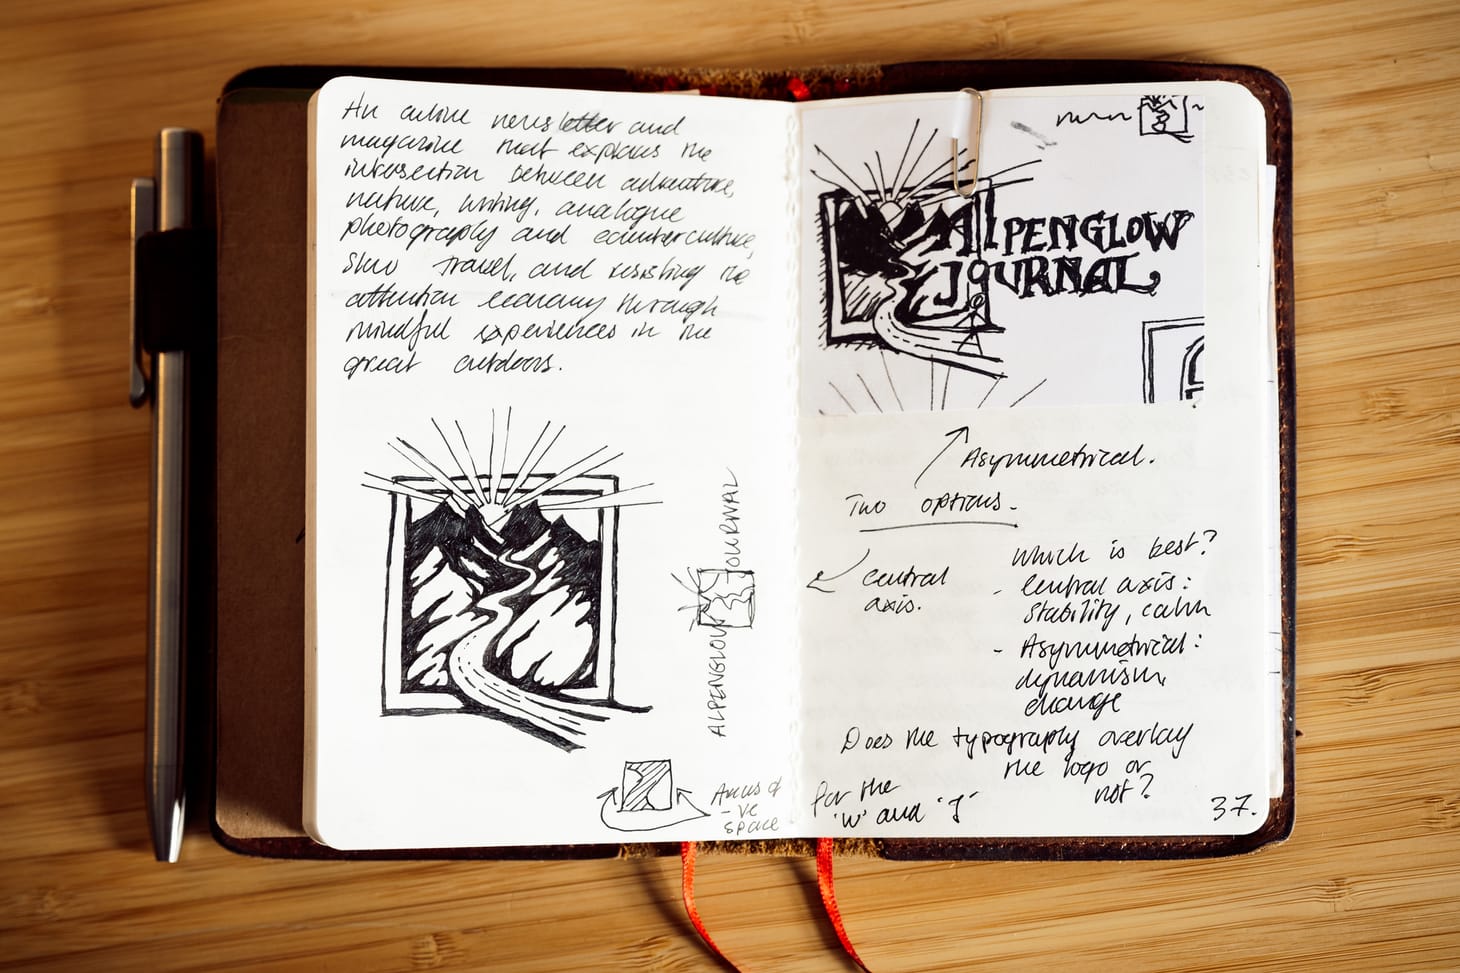 An online newsletter and
magazine that explores the
intersection between adventure,
nature, writing, analogue
photography and counterculture,
slow travel, and resisting the
attention economy through
mindful experiences in the
great outdoors.
ALPENGLOW JOURNAL
Areas of
-ve
space
for the
'W' and 'J'
ALPENGLOW
JOURNAL
Asymmetrical.
Two options.
Central
axis.
Which is best?
- Central axis:
stability, calm
- Asymmetrical:
dynamism,
change
Does the typography overlay
the logo or
not?
37.